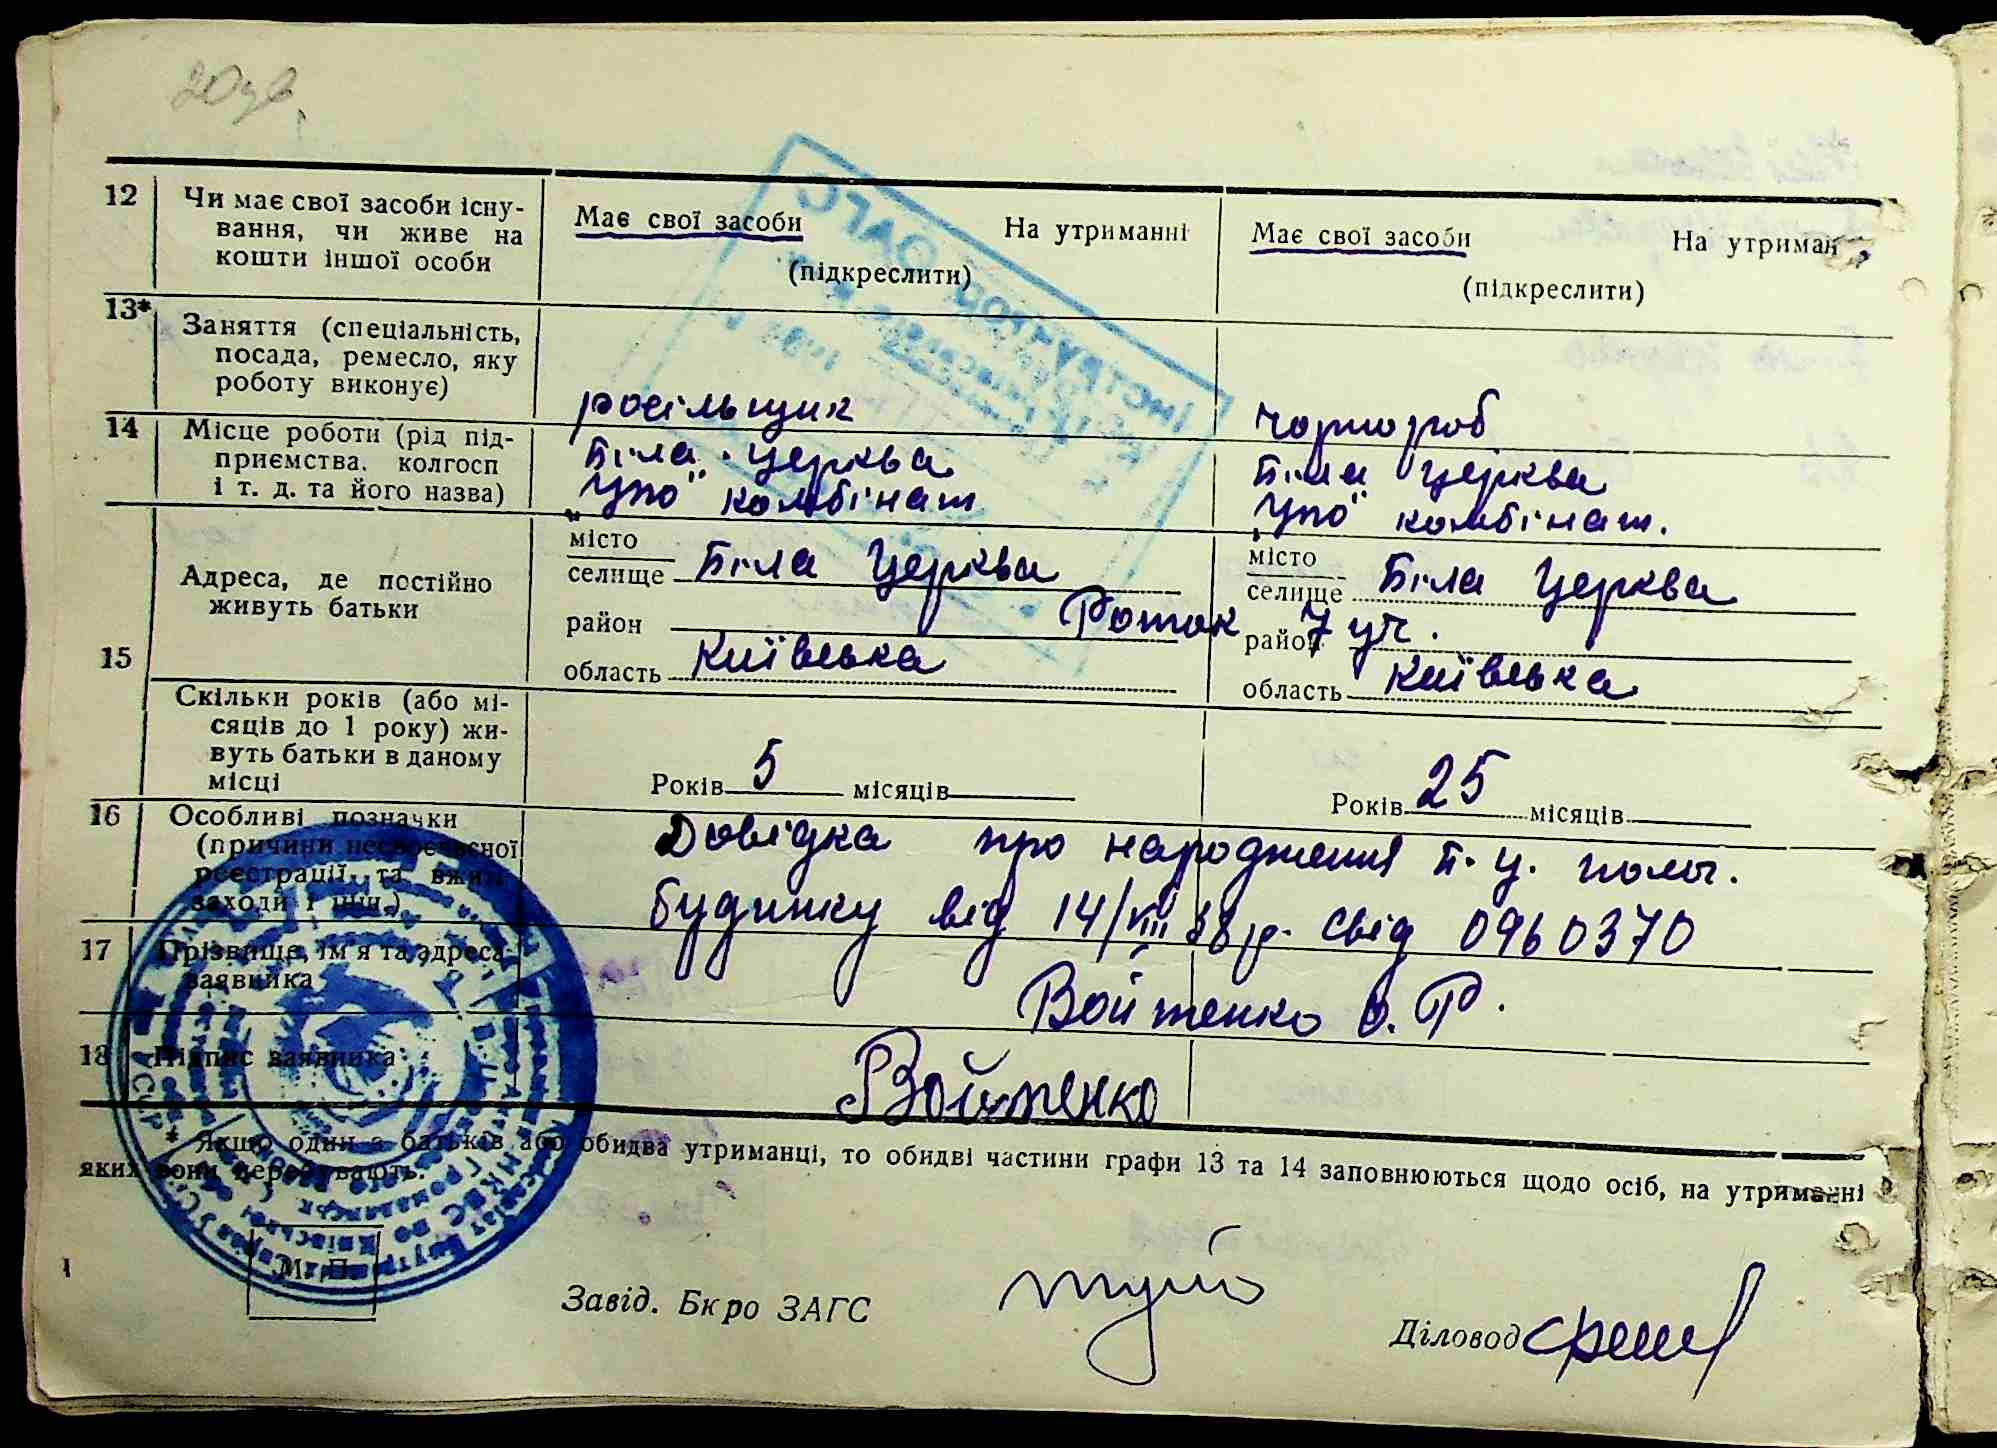 12 Чи має свої засоби існу- Має свої засоби На утриманні Має свої засоби На утриман
вання, чи живе на
кошти іншої особи (підкреслити) (підкреслити)
13* Заняття (спеціальність,
посада, ремесло, яку
роботу виконує) росільщик чорнороб
14 Місце роботи (рід під- Біла Церква Біла Церква
приємства. колгосп
і т. д. та його назва) „Упо" комбінат „Упо" комбінат.
15 Адреса, де постійно
живуть батьки
місто місто
селище Біла Церква селище Біла Церква
район Роток район 7 уч.
область Київська область Київська
Скільки років (або мі-
сяців до 1 року) жи-
вуть батьки в даному
місці Років 5 місяців Років 25 місяців
16 Особливі позначки
(причини несвоєчасної
реєстрації та вжиті
заходи і інш.)
Довідка про народження Б. Ц. полог.
будинку від 14/VIII 38 р. свід 0960370
17 Прізвище, ім'я та адреса
заявника Войтенко О. Р.
18 Підпис заявника Войтенко
* Якщо один з батьків або обидва утриманці, то обидві частини графи 13 та 14 заповнюються щодо осіб, на утриманні
яких вони перебувають.
М. П.
Завід. Бюро ЗАГС
Діловод